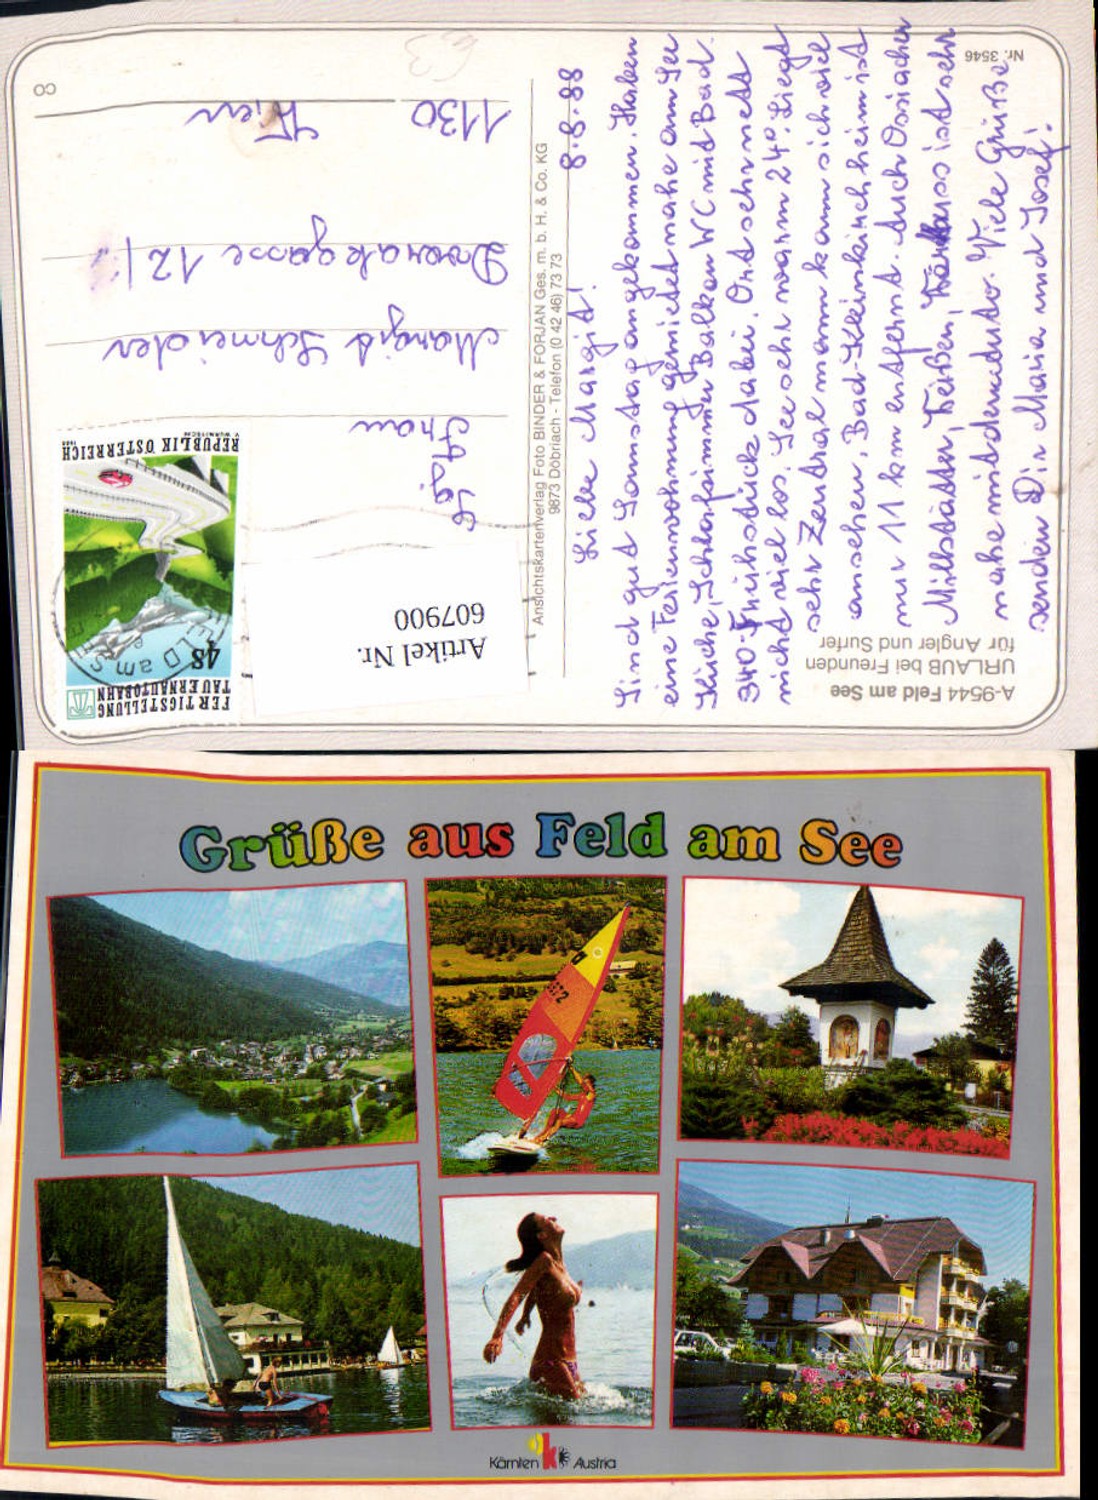 Nr. 3546
CO
A-9544 Feld am See
URLAUB bei Freunden
für Angler und Surfer
Ansichtskartenverlag Foto BINDER & FORJAN Ges. m. b. H. & Co. KG
9873 Döbriach - Telefon (0 42 46) 73 73
8.8.88
Liebe Margit!
Sind gut Sonnstag angekommen. Haben
eine Ferienwohnung gemietet nahe am See
Küche, Schlafzimmer Balkon WC mit Bad.
340.- Frühstück dabei. Ort sehr nett
nicht viel los. See sehr warm 24°. Liegt
sehr Zentral man kann sich viel
ansehen, Bad-Kleinkirchheim ist
nur 11 km entfernt. Auch Ossiacher
Millstädter, Weißen, ist sehr
nahe Viele Grüße
senden Dir Maria und Josef!
FERTIGSTELLUNG
TAUERNAUTOBAHN
4S
REPUBLIK ÖSTERREICH
FELD am S
Artikel Nr.
607900
Sg.
Frau
Margit Schneider
Dvorakgasse 12/1
1130 Wien
Grüße aus Feld am See
Kärnten k Austria